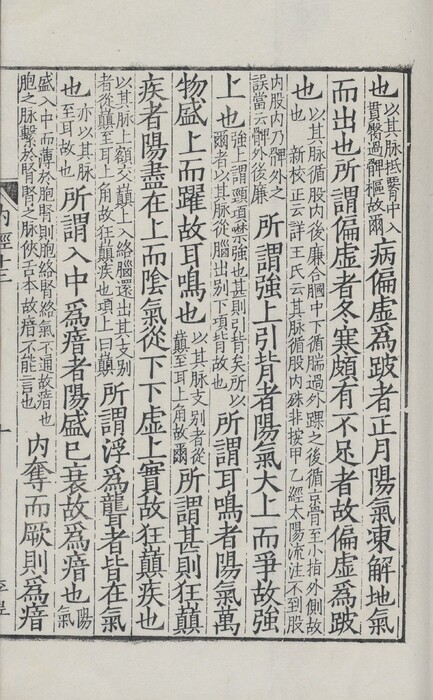 也以其脈抵腎中入貫臀過髀樞故爾病偏虛為跛者正月陽氣凍解地氣
而出也所謂偏虛者冬寒頗有不足者故偏虛為跛
也以其脈循股內後廉合膕中下循腨過外踝之後循京骨至小指外側故也新校正云詳王氏云其脈循股內殊非按甲乙經太陽流注不到股
內股內乃髀外之誤當云髀外後廉所謂強上引背者陽氣大上而爭故強
上也強上謂頸項強也甚則引背矣所以爾者以其脈從腦出別下項背故也所謂耳鳴者陽氣萬
物盛上而躍故耳鳴也以其脈支別者從巔至耳上角故爾所謂甚則狂巔
疾者陽盡在上而陰氣從下下虛上實故狂巔疾也
以其脈上額交巔上入絡腦還出其支別者從巔至耳上角故狂巔疾也項上曰巔所謂浮為聾者皆在氣
也亦以其脈至耳故也所謂入中為瘖者陽盛已衰故為瘖也陽氣
盛入中而薄於胞腎則胞絡腎絡氣不通故瘖也胞之脈繫於腎腎之脈俠舌本故瘖不能言也內奪而厥則為瘖
內經十三
十